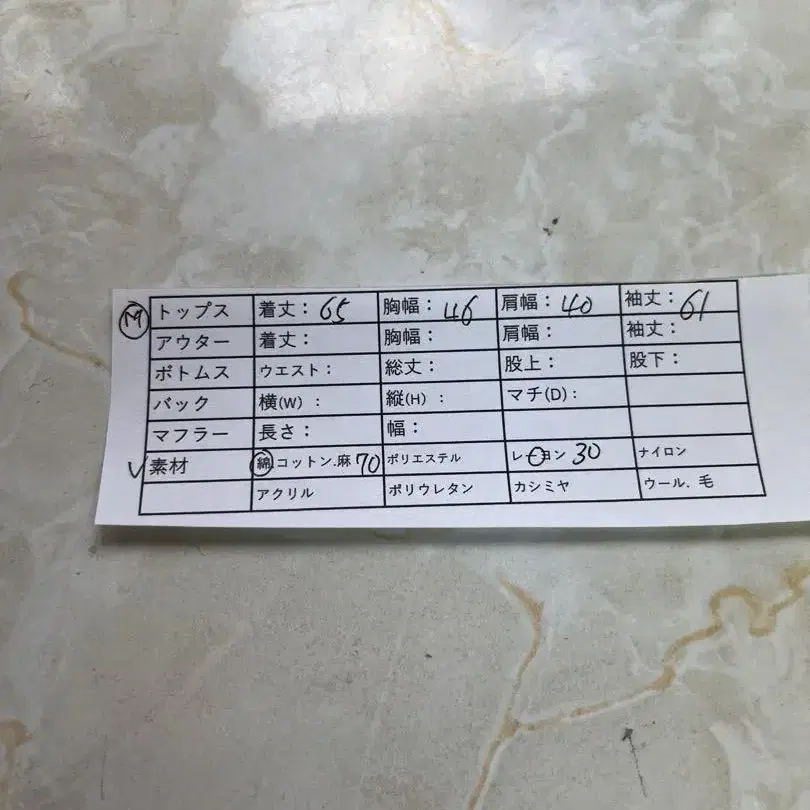 M トップス 着丈: 65 胸幅: 46 肩幅: 40 袖丈: 61
アウター 着丈: 胸幅: 肩幅: 袖丈:
ボトムス ウエスト: 総丈: 股上: 股下:
バック 横(W) : 縦(H) : マチ(D):
マフラー 長さ: 幅:
✓素材 綿.コットン.麻 70 ポリエステル レーヨン 30 ナイロン
アクリル ポリウレタン カシミヤ ウール. 毛